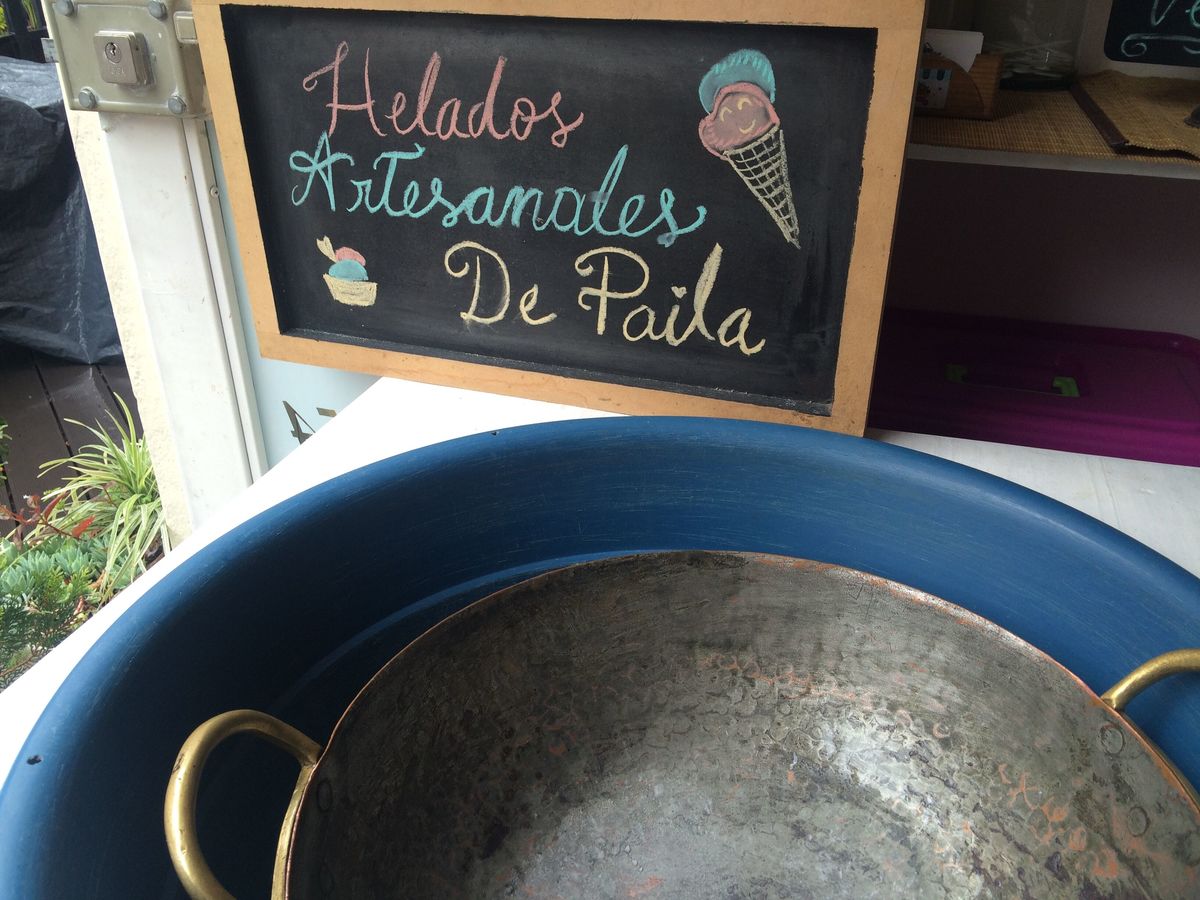 Helados
Artesanales
De Paila